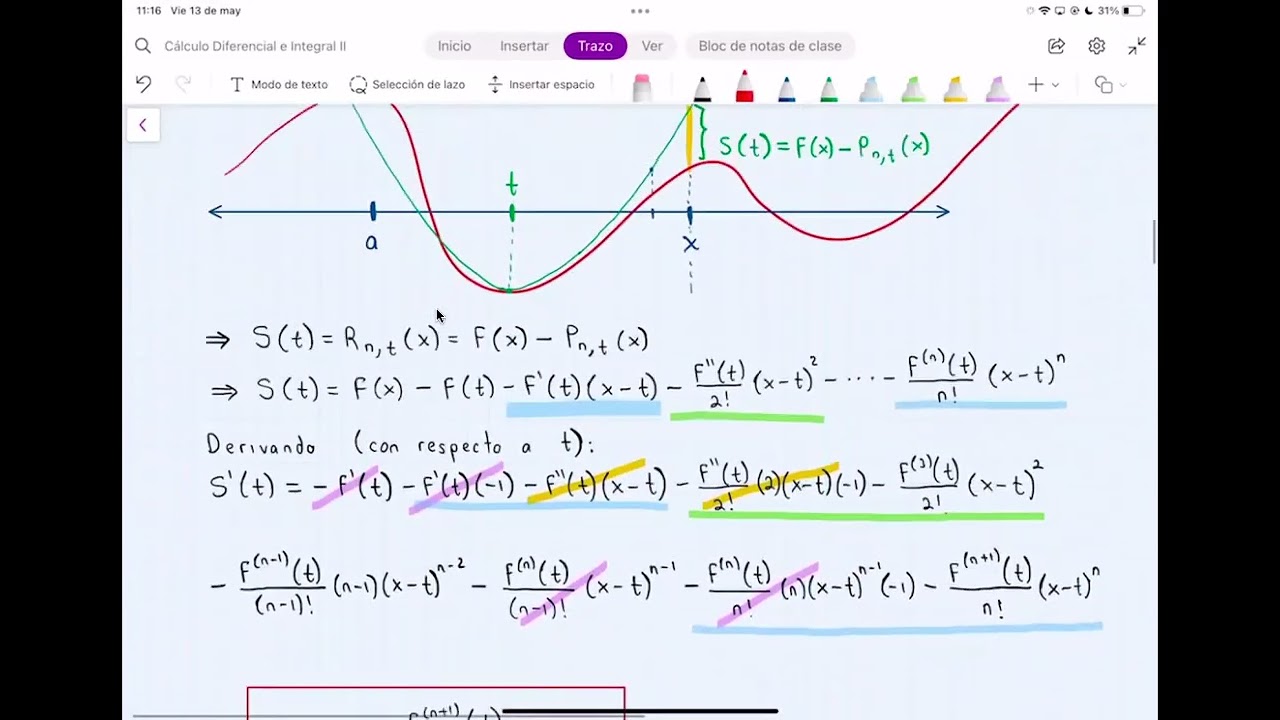 11:16 Vie 13 de may 31%
Cálculo Diferencial e Integral II Inicio Insertar Trazo Ver Bloc de notas de clase
Modo de texto Selección de lazo Insertar espacio
S(t) = F(x) - P_{n,t}(x)
t
a x
⇒ S(t) = R_{n,t}(x) = F(x) - P_{n,t}(x)
⇒ S(t) = F(x) - F(t) - F'(t)(x-t) - \frac{F''(t)}{2!}(x-t)^2 - ⋯ - \frac{F^{(n)}(t)}{n!}(x-t)^n
Derivando (con respecto a t):
S'(t) = - F'(t) - F'(t)(-1) - F''(t)(x-t) - \frac{F''(t)}{2!}(2)(x-t)(-1) - \frac{F^{(3)}(t)}{2!}(x-t)^2
- \frac{F^{(n-1)}(t)}{(n-1)!}(n-1)(x-t)^{n-2} - \frac{F^{(n)}(t)}{(n-1)!}(x-t)^{n-1} - \frac{F^{(n)}(t)}{n!}(n)(x-t)^{n-1}(-1) - \frac{F^{(n+1)}(t)}{n!}(x-t)^n